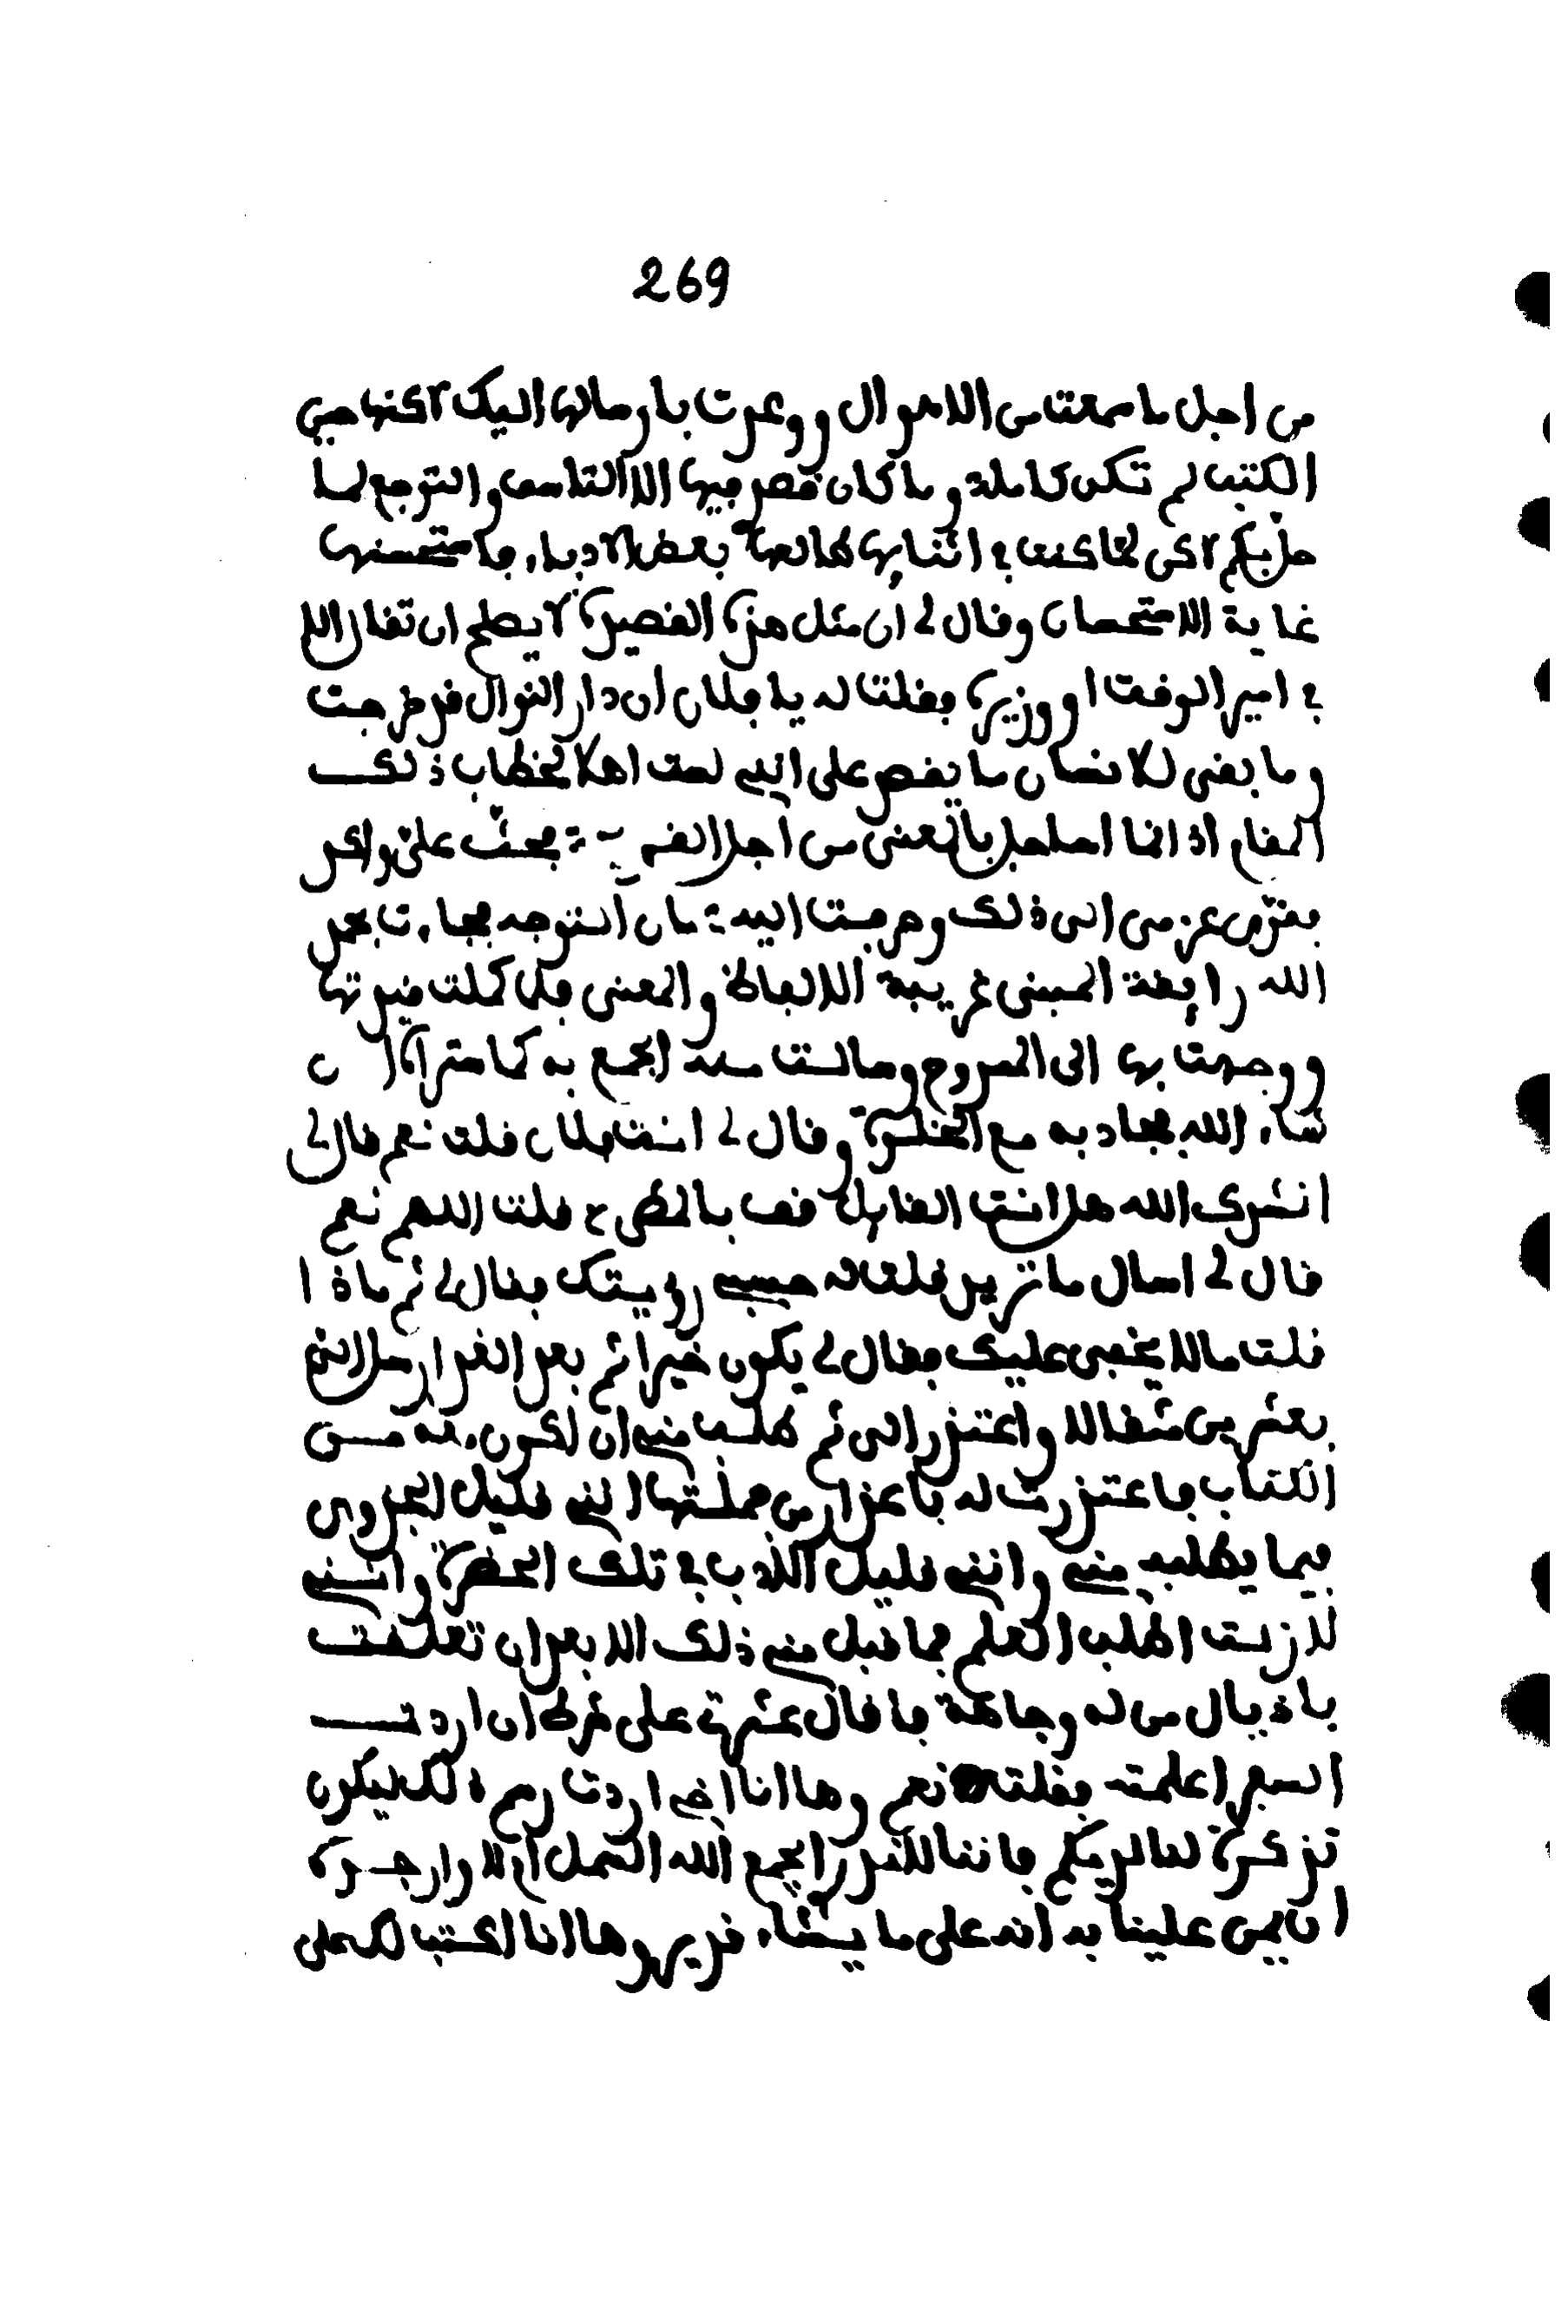 269
من اجل ما سمعت من الاهوال ووعدت بارسالها اليك لاكنها حين
الكتب لم تكن كاملة وما كان قصد فيها الا التأسف والتوجع لما
حل بكم لاكن لما كنت في اثنايها طالعها بعض الادباء فاستحسنها
غاية الاستحسان وقال لي ان مثل هذه القصيدة لا يصلح ان تقال الا
في امير الوقت او وزيره فقلت له يا فلان ان دار النوال قد خرجت
وما بقى للانسان ما يقصد على انني لست اهلا لخطاب ذلك
المقام اذ انما احلحل بالمعنى من اجل الغـ فحث علي واكد
فقوى عزمي الى ذلك وصرفت اليه عنان التوجه فجاءت بحمد
الله رايقة المبنى غريبة الالفاظ والمعنى فلما كملت قيدتها
ووجهت بها الى الممدوح وسالت منه الجمع به كما ستراه ان
شاء الله فجاد به مع الخنكرة وقال لي انت فلان قلت نعم قال لي
انشدك الله هل انت القايل قف بالمطي قلت اللهم نعم
قال لي اسال ما تريد قلت له حسبي رؤيتك فقال لي ثم ماذا
قلت ما لا يخفى عليك فقال لي يكون خيرا ثم بعد الغد ارسل الي
بعشرين مثقالا واعتذر الي ثم طلب مني ان اكون معه مـن
الكتاب فاعتذرت له باعذار من جملتها انني قليل الجدوى
فيما يطلبه مني وانني قليل الادب في تلك الحضرة وانني
لا زلت اطلب العلم فما قبل مني ذلك الا بعد ان تعلقت
باذيال من له وجاهة فاقال عثرتي على شرط ان اردت
السفر اعلمته فقلت نعم وها انا اذا اردت رسم ذلك ليكون
تذكرة لنا لديكم فاننا لا ندري ايجمع الله الشمل ام لا وارجوه
ان يمن علينا به انه على ما يشاء قدير وها انا اكتب لك على